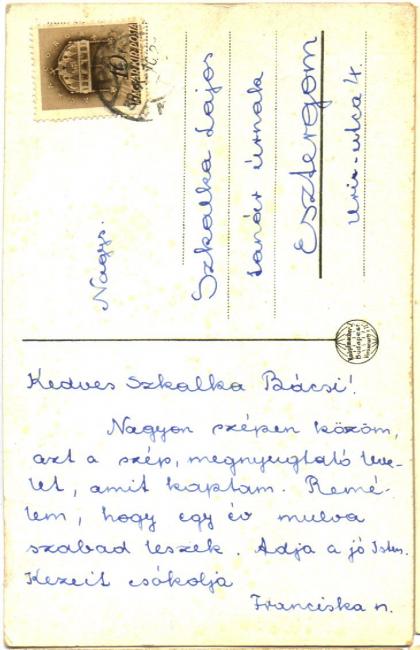 Nagys.
Szkalka Lajos
tanár úrnak
Esztergom
Uri-utca 4.
Kedves Szkalka Bácsi!
Nagyon szépen közöm,
azt a szép, megnyugtató leve-
let, amit kaptam. Remé-
lem, hogy egy év mulva
szabad leszek. Adja a jó Isten.
Kezeit csókolja
Franciska n.